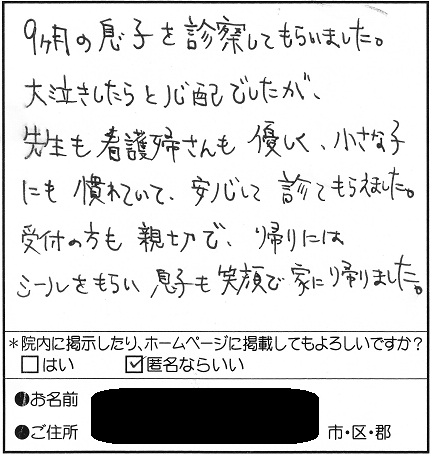 9ヶ月の息子を診察してもらいました。
大泣きしたらと心配でしたが、
先生も看護婦さんも優しく、小さな子
にも慣れていて、安心して診てもらえました。
受付の方も親切で、帰りには
シールをもらい息子も笑顔で家に帰りました。
*院内に掲示したり、ホームページに掲載してもよろしいですか?
□はい ☑匿名ならいい
●お名前
●ご住所 市・区・郡